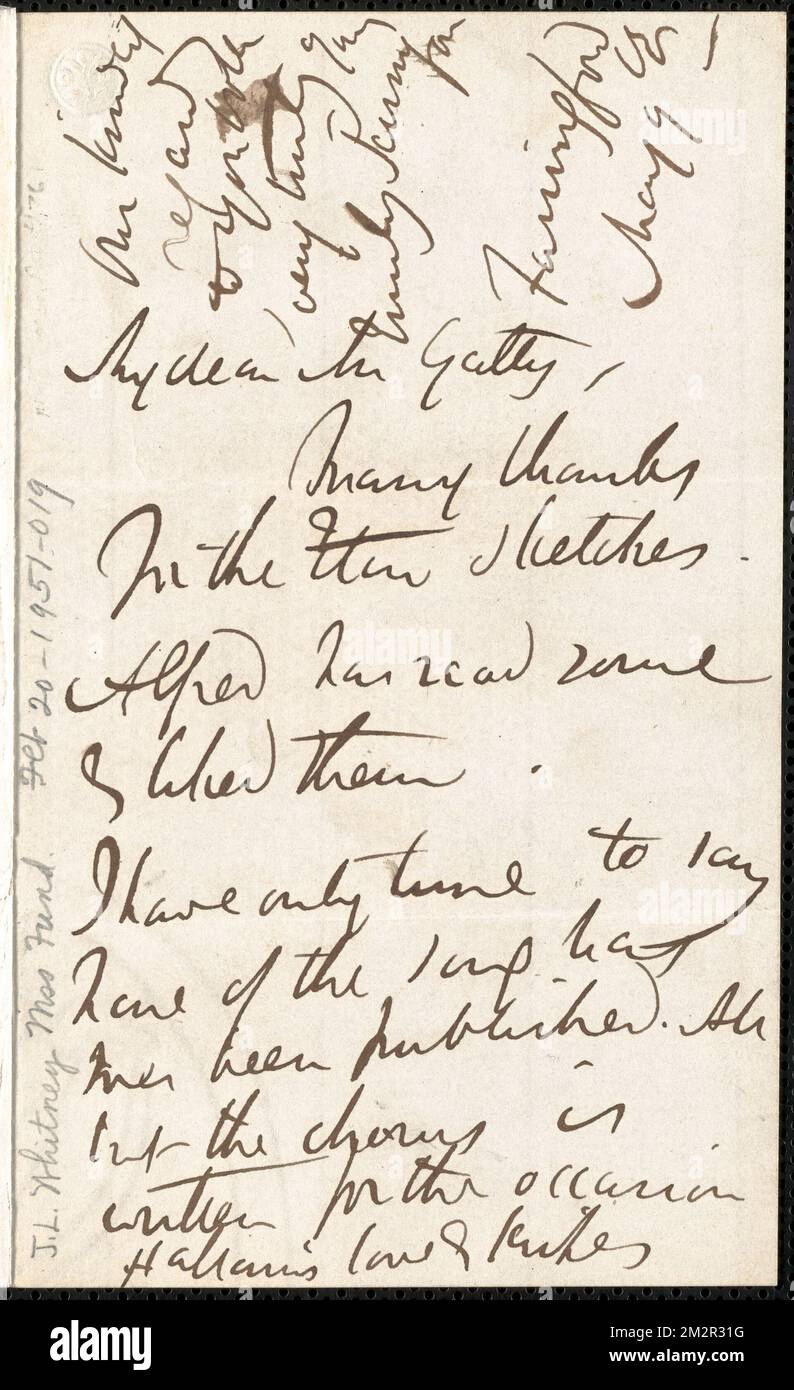 Farringford
May 9
My dear Mr Gatty,
Many thanks
for the Eton sketches.
Alfred has read some
& liked them.
I have only time to say
none of the song has
ever been published. All
but the chorus is
written for the occasion
Hallam's love &
Our kindest
regards
to you both
very truly yours
Emily Tennyson
J.L. Whitney Mss Fund. Feb 20-1951-019
alamy
alamy
alamy
alamy
Image ID: 2M2R31G
www.alamy.com